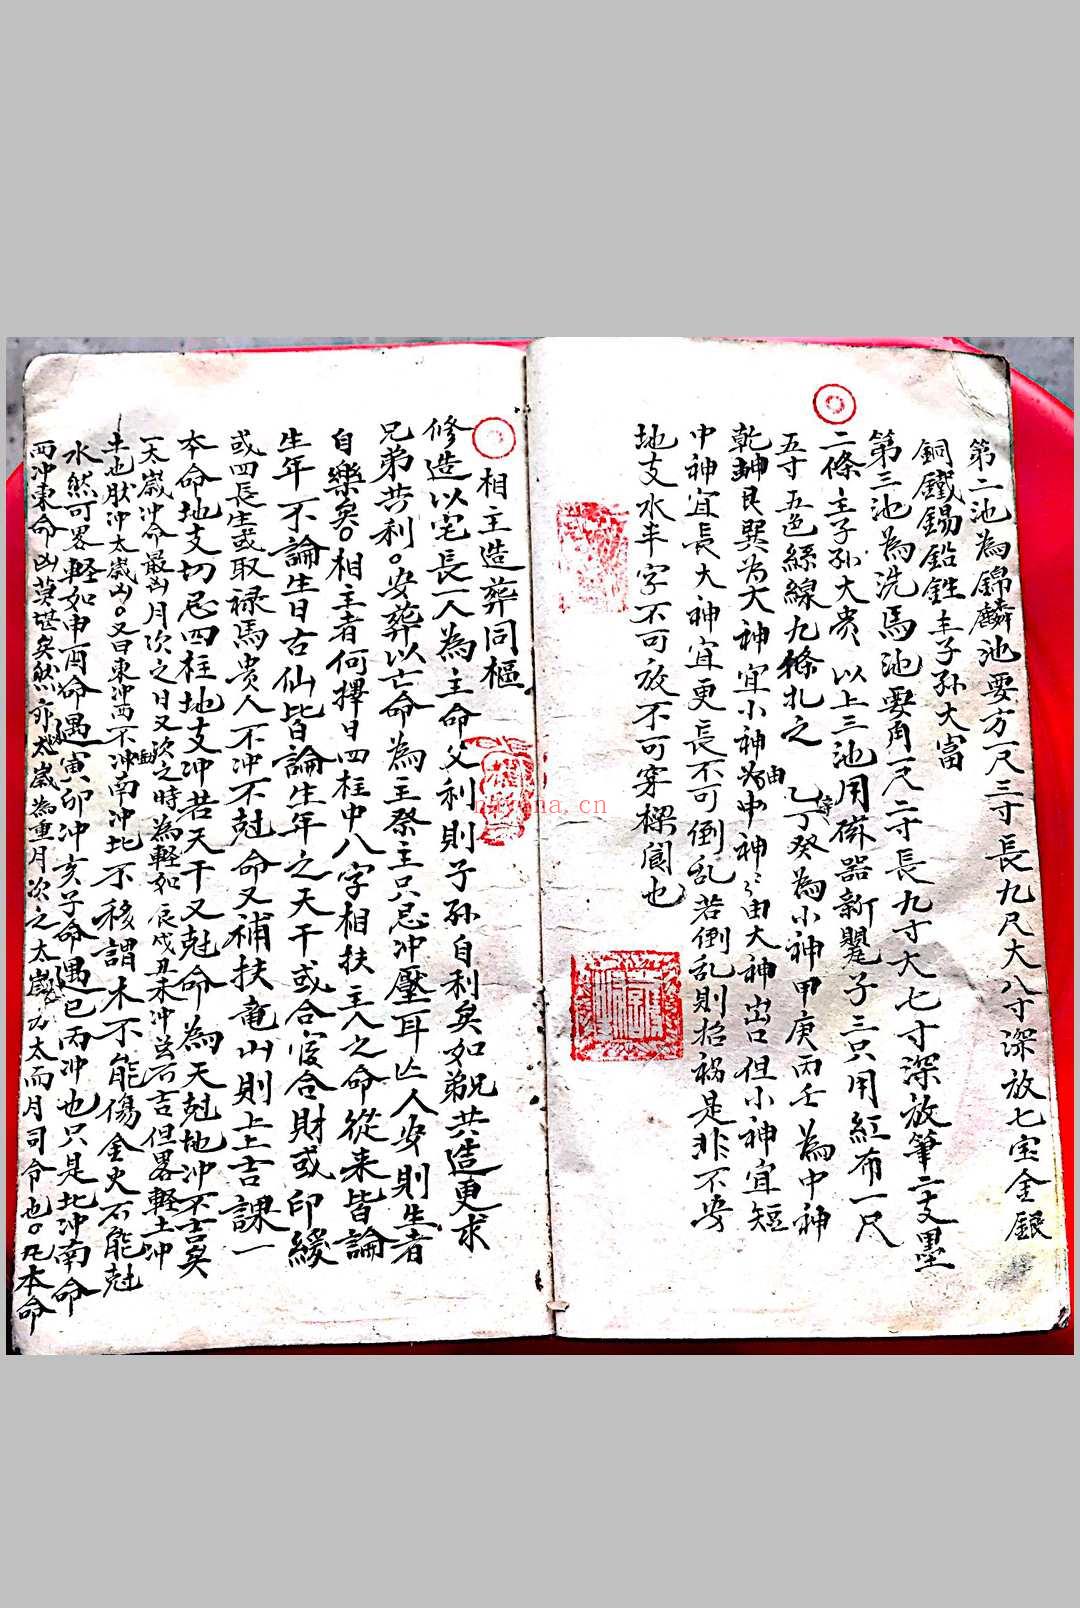 第二池為錦麟池要方一尺三寸長九尺大八寸深放七宝金銀
銅鐵錫鉛銼主子孫大富
第三池為洗馬池要角一尺二寸長九寸大七寸深放筆二支墨
二條主子孫大贵以上三池用磁器新甖子三只用紅布一尺
五寸五色絲線九條扎之 乙辛丁癸為小神甲庚丙壬為中神
乾坤艮巽为大神宜小神由中神中神由大神出但小神宜短
中神宜長大神宜更長不可倒乱若倒乱則招禍是非不安
地支水丰字不可放不可穿樑閬也
相主造葬同樞
修造以宅長一人為主命父利則子孙自利矣如弟兄共造更求
兄弟共利。安葬以亡命為主祭主只忌冲壓耳亾人安則生者
自樂矣。相主者何擇日四柱中八字相扶主人之命從来皆論
生年不論生日古仙皆論生年之天干或合官合財或印綬
或四長生或取禄馬贵人不冲不尅命又補扶竜山則上上吉課一
本命地支切忌四柱地支冲若天干又尅命為天尅地冲不吉矣
一太歲冲命最凶月次之日又次之時為軽如辰戌丑未冲為吉但畧軽土冲
土也肰冲太歲凶。又曰東冲西不動南冲北不移謂木不能傷金火不能尅
水然可畧軽如申酉命遇寅卯冲亥子命遇巳丙冲也只是北冲南命
西冲東命凶莫堪矣然亦太歲為重月次之太歲為太而月司令也。凡本命
nayona.cn